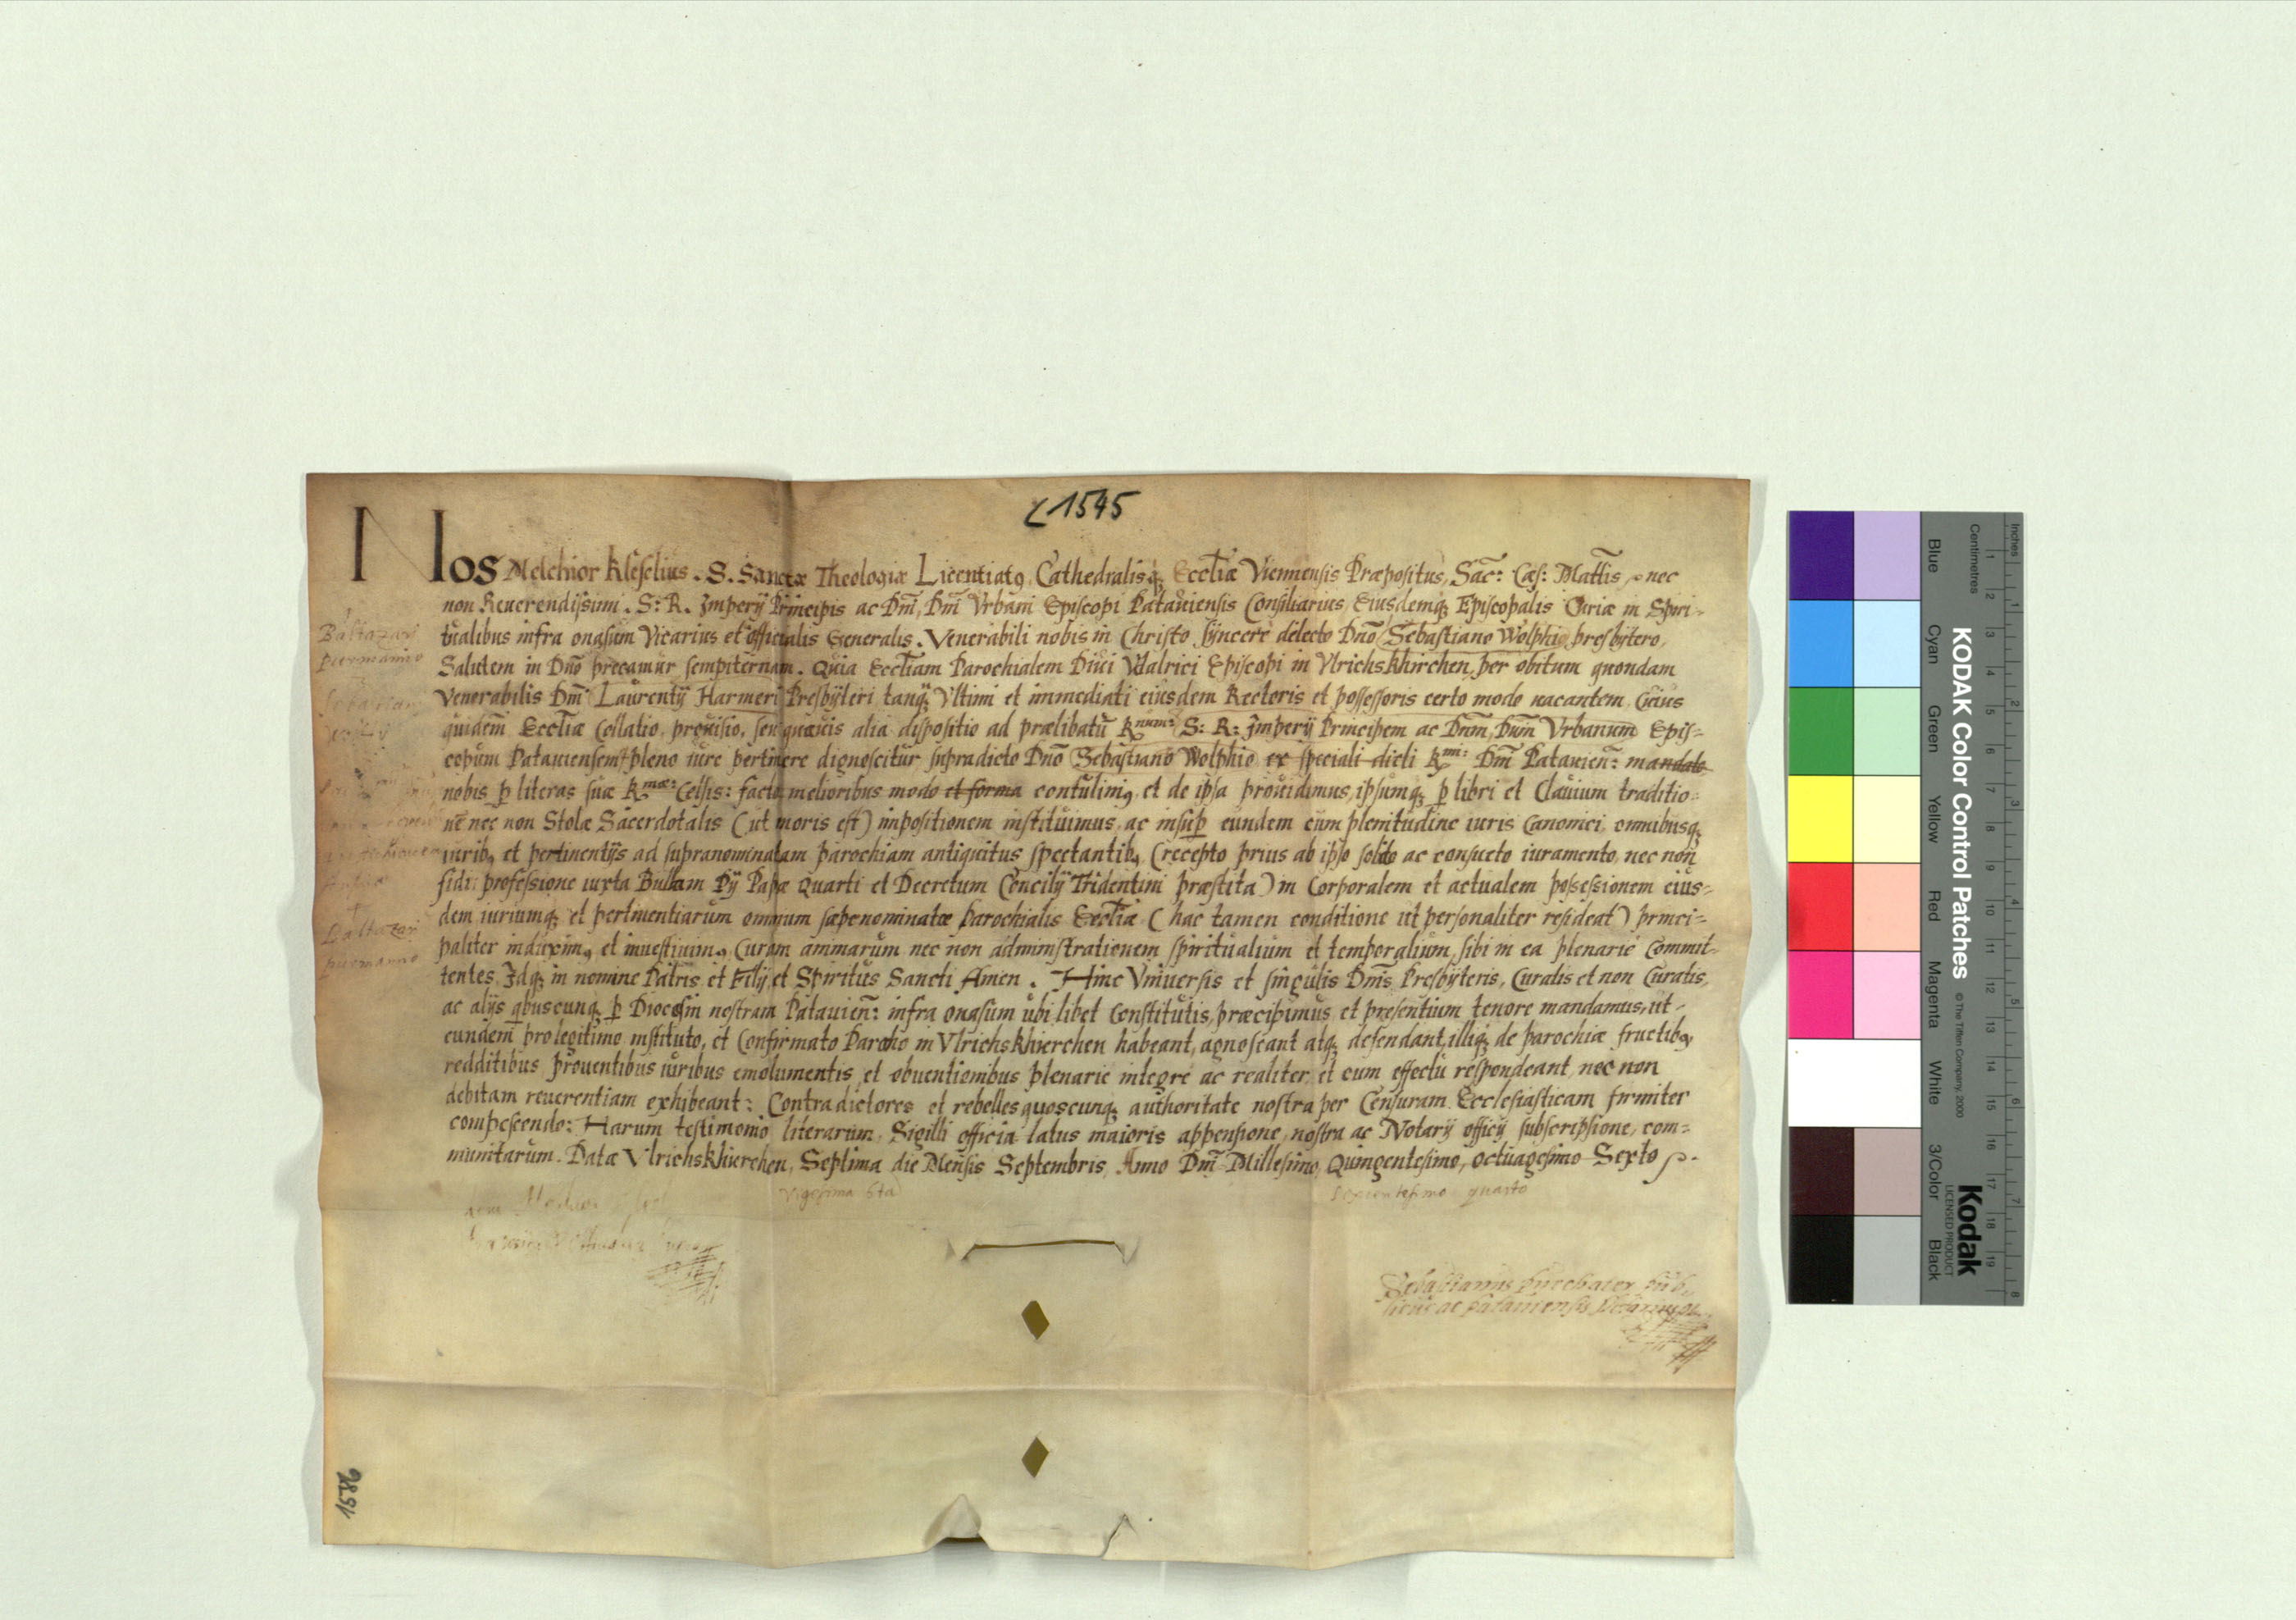 C 1545
Nos Melchior Kleselius . S. Sanctæ Theologiæ Licentiatꝯ, Cathedralisq́ꝫ Eccłiæ Viennensis Præpositus, Sac̃: Cæs: Mattis nec
non Reuerendissimi . S: R. Imperij Principis ac Dm̃, Dm̃ Vrbani Episcopi Patauiensis Consiliarius, Eiusdemqꝫ Episcopalis Curiæ in Spiri-
tualibus infra onasum Vicarius et officialis Generalis. Venerabili nobis in Christo syncere dilecto Dnõ Sebastiano Wolphio presbytero,
Salutem in Dnõ precamur sempiternam. Quia Eccłiam Parochialem Diui Vdalrici Episcopi in Vlrichskhirchen, per obitum quondam
Venerabilis Dm̃ Laurentij Harmeri Presbyteri tanqꝫ Vltimi et immediati eiusdem Rectoris et possessoris certo modo uacantem, Cuius
quidem Eccłiæ Collatio, prouisio, seu quæuis alia dispositio ad prælibatũ Rmum: S: R: Imperij Principem ac Dnm̃, Dnm̃ Vrbanum Epis-
copum Patauiensem pleno iure pertinere dignoscitur, supradicto Dnõ Sebastiano Wolphio ex speciali dicti Rmi: Dm̃ Patauien̄: mandato
nobis ꝑ literas suæ Rmæ: Celsis: facto melioribus modo et forma contulimꝯ et de ipsa prouidimus, ipsumqꝫ ꝑ libri et Clauium traditio-
nẽ nec non Stolæ Sacerdotalis (ut moris est) impositionem instituimus, ac insuꝑ eundem cum plenitudine iuris Canonici, omnibusqꝫ
iuribꝯ et pertinentijs ad supranominatam parochiam antiquitus spectantibꝯ (recepto prius ab ipso solito ac consueto iuramento, nec non
fidei professione iuxta Bullam Pij Papæ Quarti et Decretum Concilij Tridentini præstita) in Corporalem et actualem possessionem eius-
dem iuriumqꝫ et pertinentiarum omnium sæpenominatæ Parochialis Eccłiæ (hac tamen conditione ut personaliter resideat) princi-
paliter induximꝯ et inuestiuimꝯ Curam animarum nec non administrationem spiritualium et temporalium, sibi in ea plenarie Commit-
tentes, Idqꝫ in nomine Patris et Filij et Spiritus Sancti Amen . Hinc Vniuersis et singulis Dm̃s Presbyteris, Curatis et non Curatis,
ac alijs qbuscunqꝫ ꝑ Diocesin nostram Patauien̄: infra onasum ubilibet Constitutis, præcipimus et presentium tenore mandamus, ut
eundem pro legitimo instituto, et Confirmato Parocho in Vlrichskhierchen habeant, agnoscant atqꝫ defendant, illiqꝫ de parochiæ fructibꝯ,
redditibus prouentibus iuribus emolumentis et obuentionibus plenarie integre ac realiter et cum effectu respondeant, nec non
debitam reuerentiam exhibeant: Contradictores et rebelles quoscunqꝫ authoritate nostra per Censuram Ecclesiasticam firmiter
compescendo: Harum testimonio literarum, Sigilli officialatus maioris appensione, nostra ac Notarij officij subscripsione, com-
munitarum. Datæ Vlrichskhierchen, Septima die Mensis Septembris, Anno Dm̃ Millesimo, Quingentesimo, octuagesimo Sexto
Vigesima 6ta
Sexcentesimo quarto
Baltazari
Biermanno
Baltazari
biermanno
Sebastianus
licus ac patauiensis
1586
KODAK Color Control Patches
© The Tiffen Company, 2000
Kodak
LICENSED PRODUCT
Blue Cyan Green Yellow Red Magenta White 3/Color Black
Inches 1 2 3 4 5 6 7 8
Centimetres 1 2 3 4 5 6 7 8 9 10 11 12 13 14 15 16 17 18 19